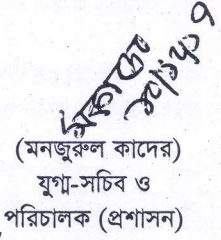 (মনজুরুল কাদের)
যুগ্ম-সচিব ও
পরিচালক (প্রশাসন)